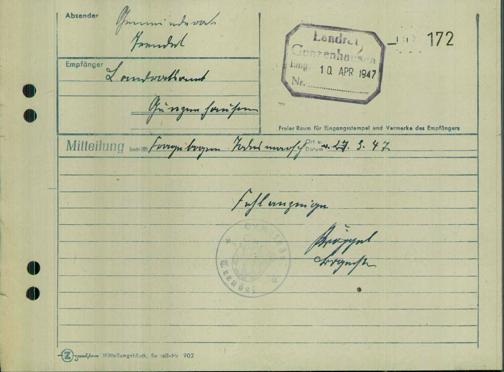 Absender
Gemeinderat
Trendel
Empfänger
Landratsamt
Gunzenhausen
Landrat
Gunzenhausen
Eing. 10. APR 1947
Nr.
172
Freier Raum für Eingangsstempel und Vermerke des Empfängers
Mitteilung
Fragebogen Todesmarsch
Ort u. Datum
27. 3. 47
Fehlanzeige
Mitteilungsblock, Bestell-Nr. 902